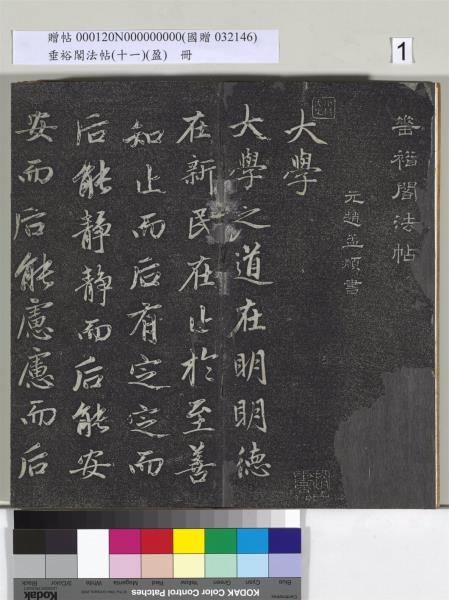 贈帖 000120N000000000(國贈 032146)
垂裕閣法帖(十一)(盈)　冊
1
垂裕閣法帖
元趙孟頫書
大學
大學之道在明明德
在新民在止於至善
知止而后有定定而
后能静静而后能安
安而后能慮慮而后
Kodak
Black
3/Color
White
Magenta
Red
Yellow
Green
Cyan
Blue
KODAK Color Control Patches